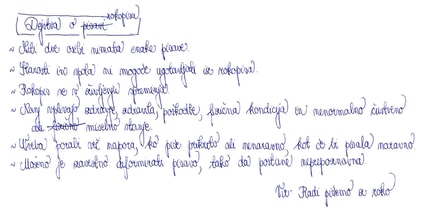 Dejstva o pisavi rokopisa
~ Niti dve osebi nimata enake pisave.
~ Starosti in spola ni mogoče ugotavljati iz rokopisa.
~ Rokopis se v življenju spreminja.
~ Nanj vplivajo zdravje, zdravila, poškodbe, fizična kondicija in nenormalno čustveno
ali miselno stanje.
~ Več napora, ko piše prikrito ali nenaravno, kot če bi pisala naravno
~ Možno je zavestno deformirati pisavo, tako da postane neprepoznavna.
Vir: Radi pišemo z roko